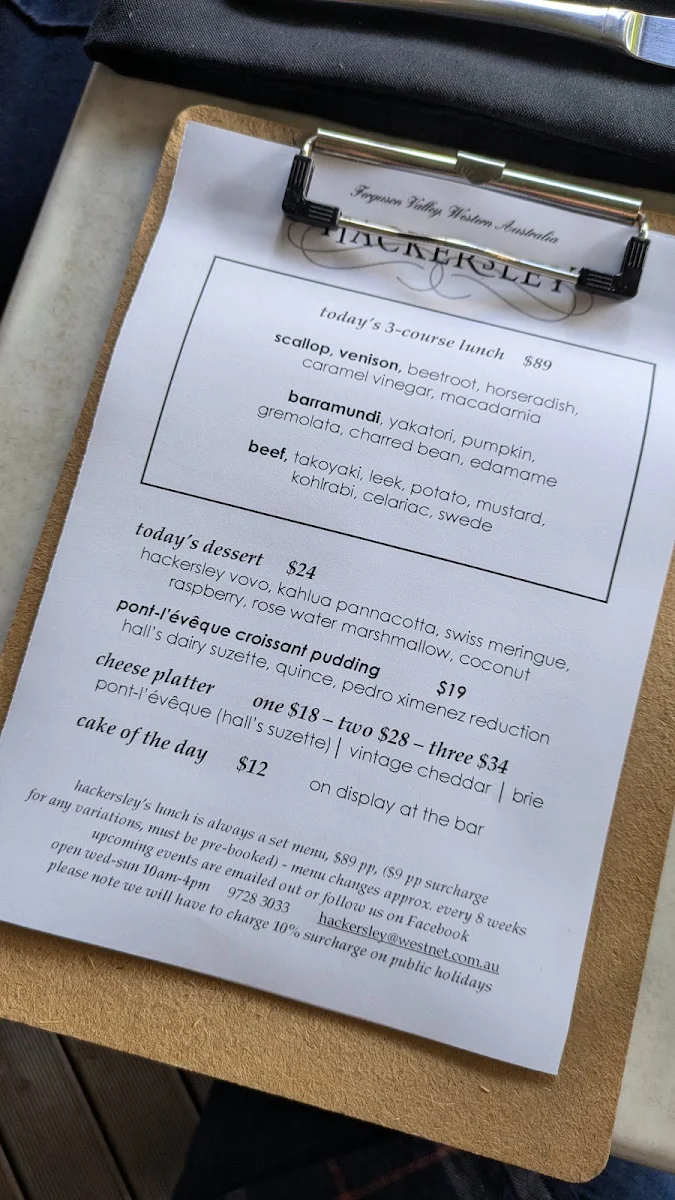 Ferguson Valley, Western Australia
HACKERSLEY
today's 3-course lunch $89
scallop, venison, beetroot, horseradish,
caramel vinegar, macadamia
barramundi, yakatori, pumpkin,
gremolata, charred bean, edamame
beef, takoyaki, leek, potato, mustard,
kohlrabi, celariac, swede
today's dessert $24
hackersley vovo, kahlua pannacotta, swiss meringue,
raspberry, rose water marshmallow, coconut
pont-l'évêque croissant pudding $19
hall's dairy suzette, quince, pedro ximenez reduction
cheese platter one $18 – two $28 – three $34
pont-l'évêque (hall's suzette) | vintage cheddar | brie
cake of the day $12 on display at the bar
hackersley's lunch is always a set menu, $89 pp, ($9 pp surcharge
for any variations, must be pre-booked) - menu changes approx. every 8 weeks
upcoming events are emailed out or follow us on Facebook
open wed-sun 10am-4pm 9728 3033 hackersley@westnet.com.au
please note we will have to charge 10% surcharge on public holidays